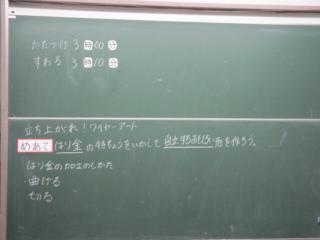 かたづけ 3 時 00 分
すわる 3 時 10 分
立ち上がれ！ワイヤーアート
めあて はり金の特ちょうをいかして自立するおもしろい形を作ろう。
はり金の加工のしかた
・曲げる
切る